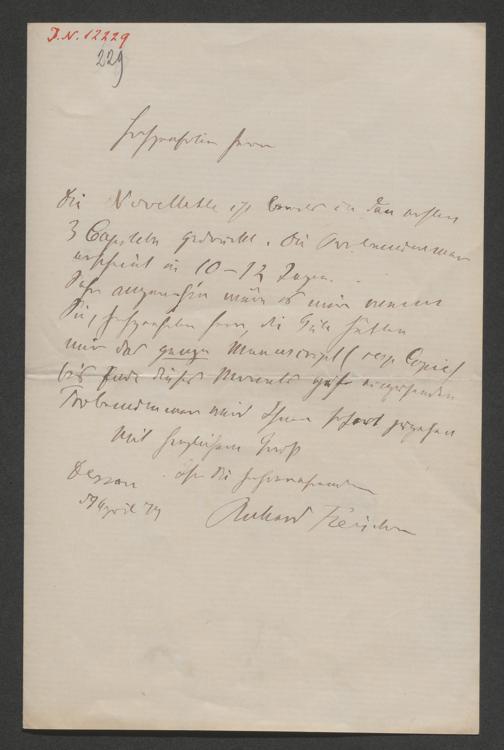 J.N. 12229
229
Hochgeehrter Herr
Die Novellette ist bereits in den ersten
3 Capiteln gedruckt. Die Probenummer
erscheint in 10-12 Tagen.
Sehr angenehm wäre es mir wenn
Sie, hochgeehrter Herr, die Güte hätten
mir das ganze Manuscript (resp Copie)
bis Ende dieses Monats einzusenden
Probenummer wird Ihnen sofort zugehen
Mit herzlichem Gruß
Ihr Sie hochverehrender
Dessau
April 79
Richard Fleischer